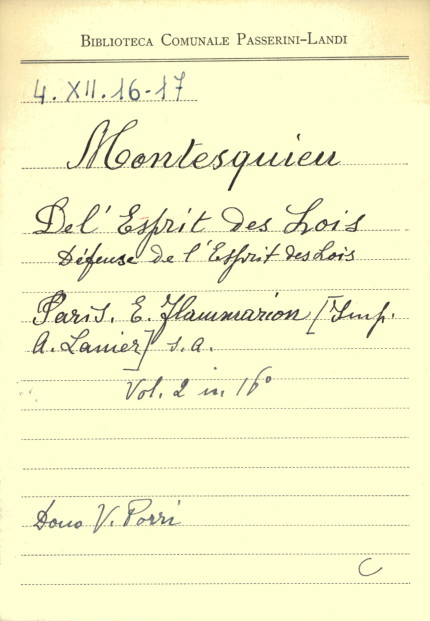 BIBLIOTECA COMUNALE PASSERINI-LANDI
4. XII. 16-17
Montesquieu
Del' Esprit des Lois
Défense de l'Esprit des Lois
Paris. E. Flammarion [Imp.
A. Lanier] s.a.
Vol. 2 in 16°
Dono V. Porri
C